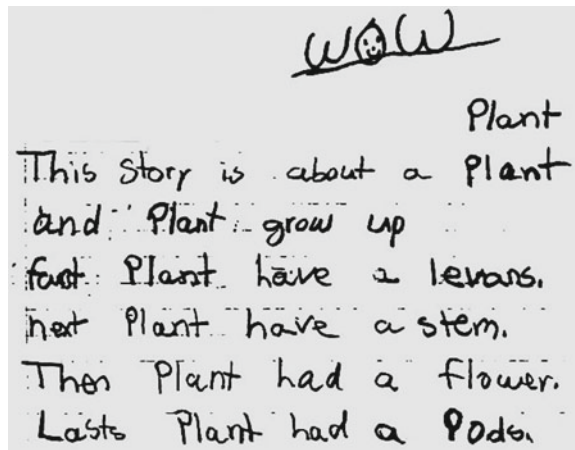 WOW
Plant
This Story is about a Plant
and Plant grow up
fast Plant have a levans.
next Plant have a stem.
Then Plant had a flower.
Lasts Plant had a Pods.